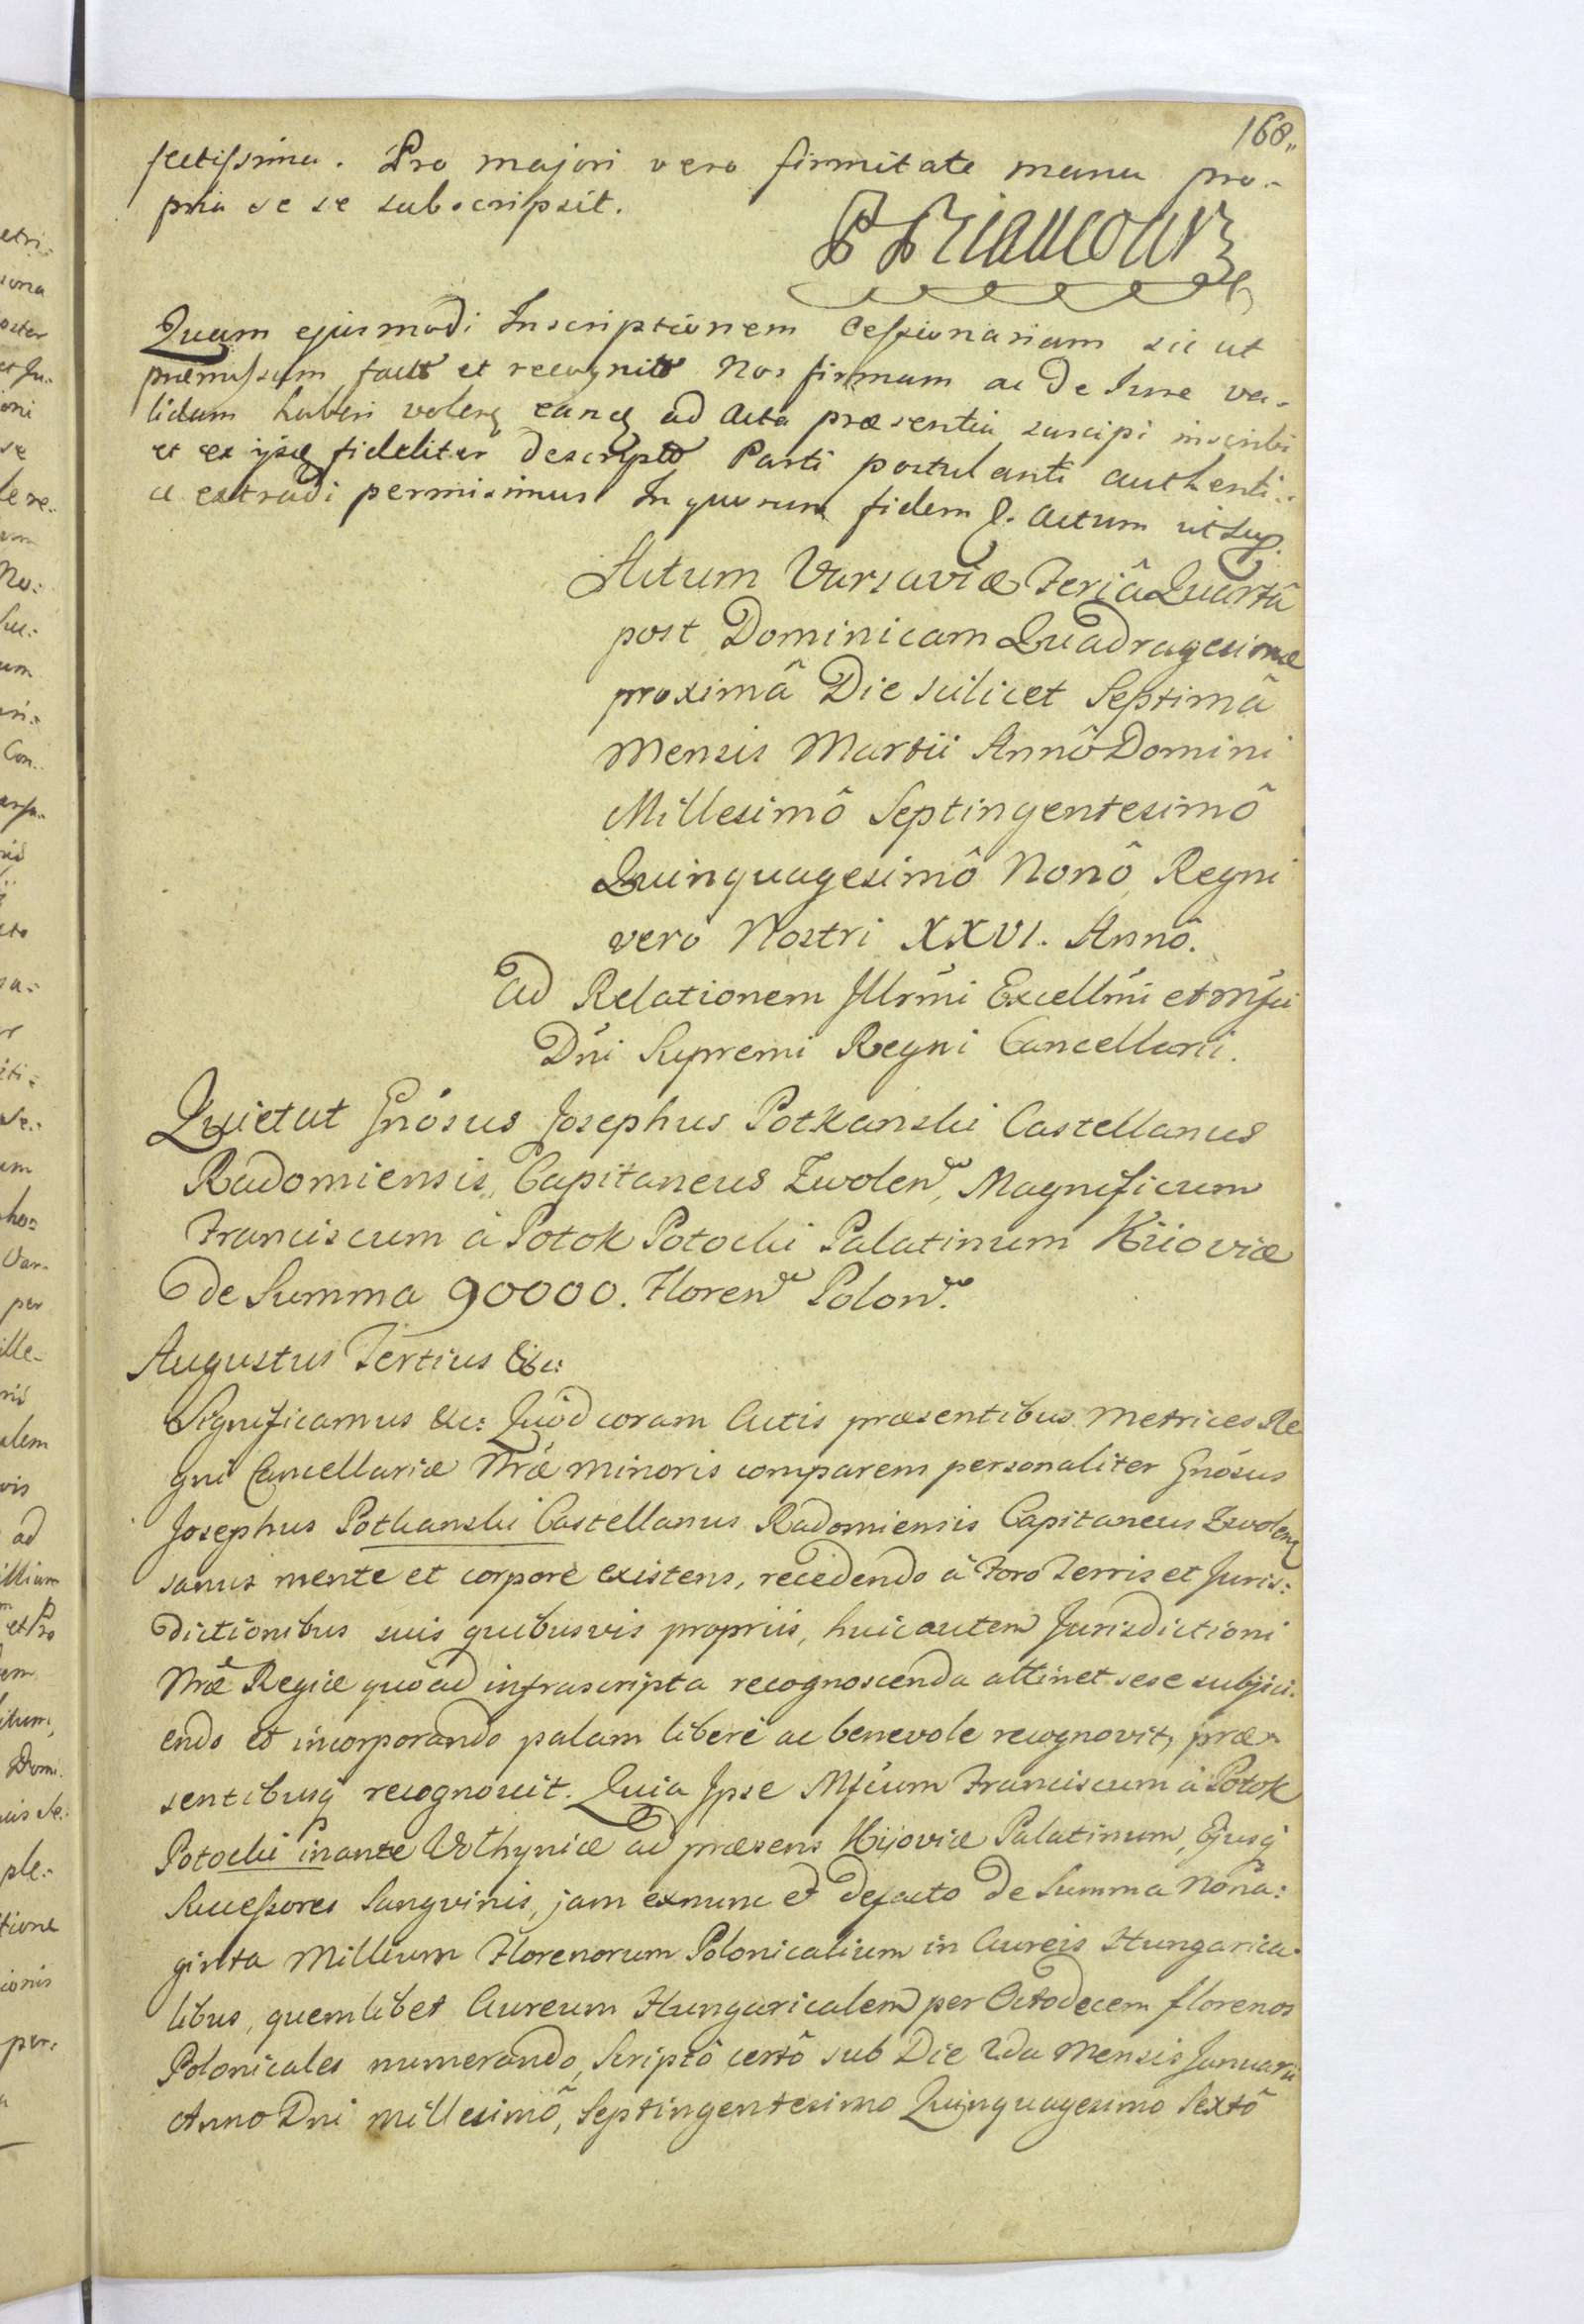 168.,
fectissima. Pro majori vero firmitate manu pro-
pria se se subscripsit.
P Priaucourt
Quam ejusmodi Inscriptionem Cessionariam sic ut
præmissum facto et recognito Nos firmam ac de Jure va-
lidam haberi voleng eanq ad Acta præsentia suscipi inscribi
et ex ijsq fideliter descripto Parti postulanti authenti-
ce extradi permisimus In quorum fidem &. Actum ut Sup.
Actum Varsaviæ Feriâ Quartâ
post Dominicam Quadragesimæ
proximâ Die scilicet Septimâ
Mensis Martii Annô Domini
Millesimô Septingentesimô
Quinquagesimô Nonô Regni
vero Nostri XXVI. Annô.
Ad Relationem Illrmi Excellmi et Mfci
Dni Supremi Regni Cancellarii.
Quietat Gnosus Josephus Potkanski Castellanus
Radomiensis, Capitaneus Zwolen, Magnificum
Franciscum à Potok Potocki Palatinum Kiioviæ
de Summa 90000. Floren Polon.
Augustus Tertius &c:
Significamus &c: Quòd coram Actis præsentibus Metrices Re
gni Cancellariæ Nræ minoris comparens personaliter Gnosus
Josephus Potkanski Castellanus Radomiensis Capitaneus Zwoleng
sanus mente et corpore existens, recedendo à Foro Terris et Juris:
dictionibus suis quibusvis propriis, huic autem Jurisdictioni
Nræ Regiæ quoad infrascripta recognoscenda attinet sese subjici-
endo et incorporando palam liberè ac benevole recognovit, præ-
sentibusq recognoscit. Quia Ipse Mfcum Franciscum à Potok
Potocki inante Volhyniæ ad præsens Kijoviæ Palatinum, Ejusq
Successores Sangvinis, jam exnunc et defacto de Summa Nona:
ginta Millium Florenorum Polonicalium in Aureis Hungarica-
libus, quemlibet Aureum Hungaricalem per Octodecem florenos
Polonicales numerando, Scriptô certô sub Die 2da Mensis Januarii
Anno Dni millesimô, Septingentesimo Quinquagesimo Sextô